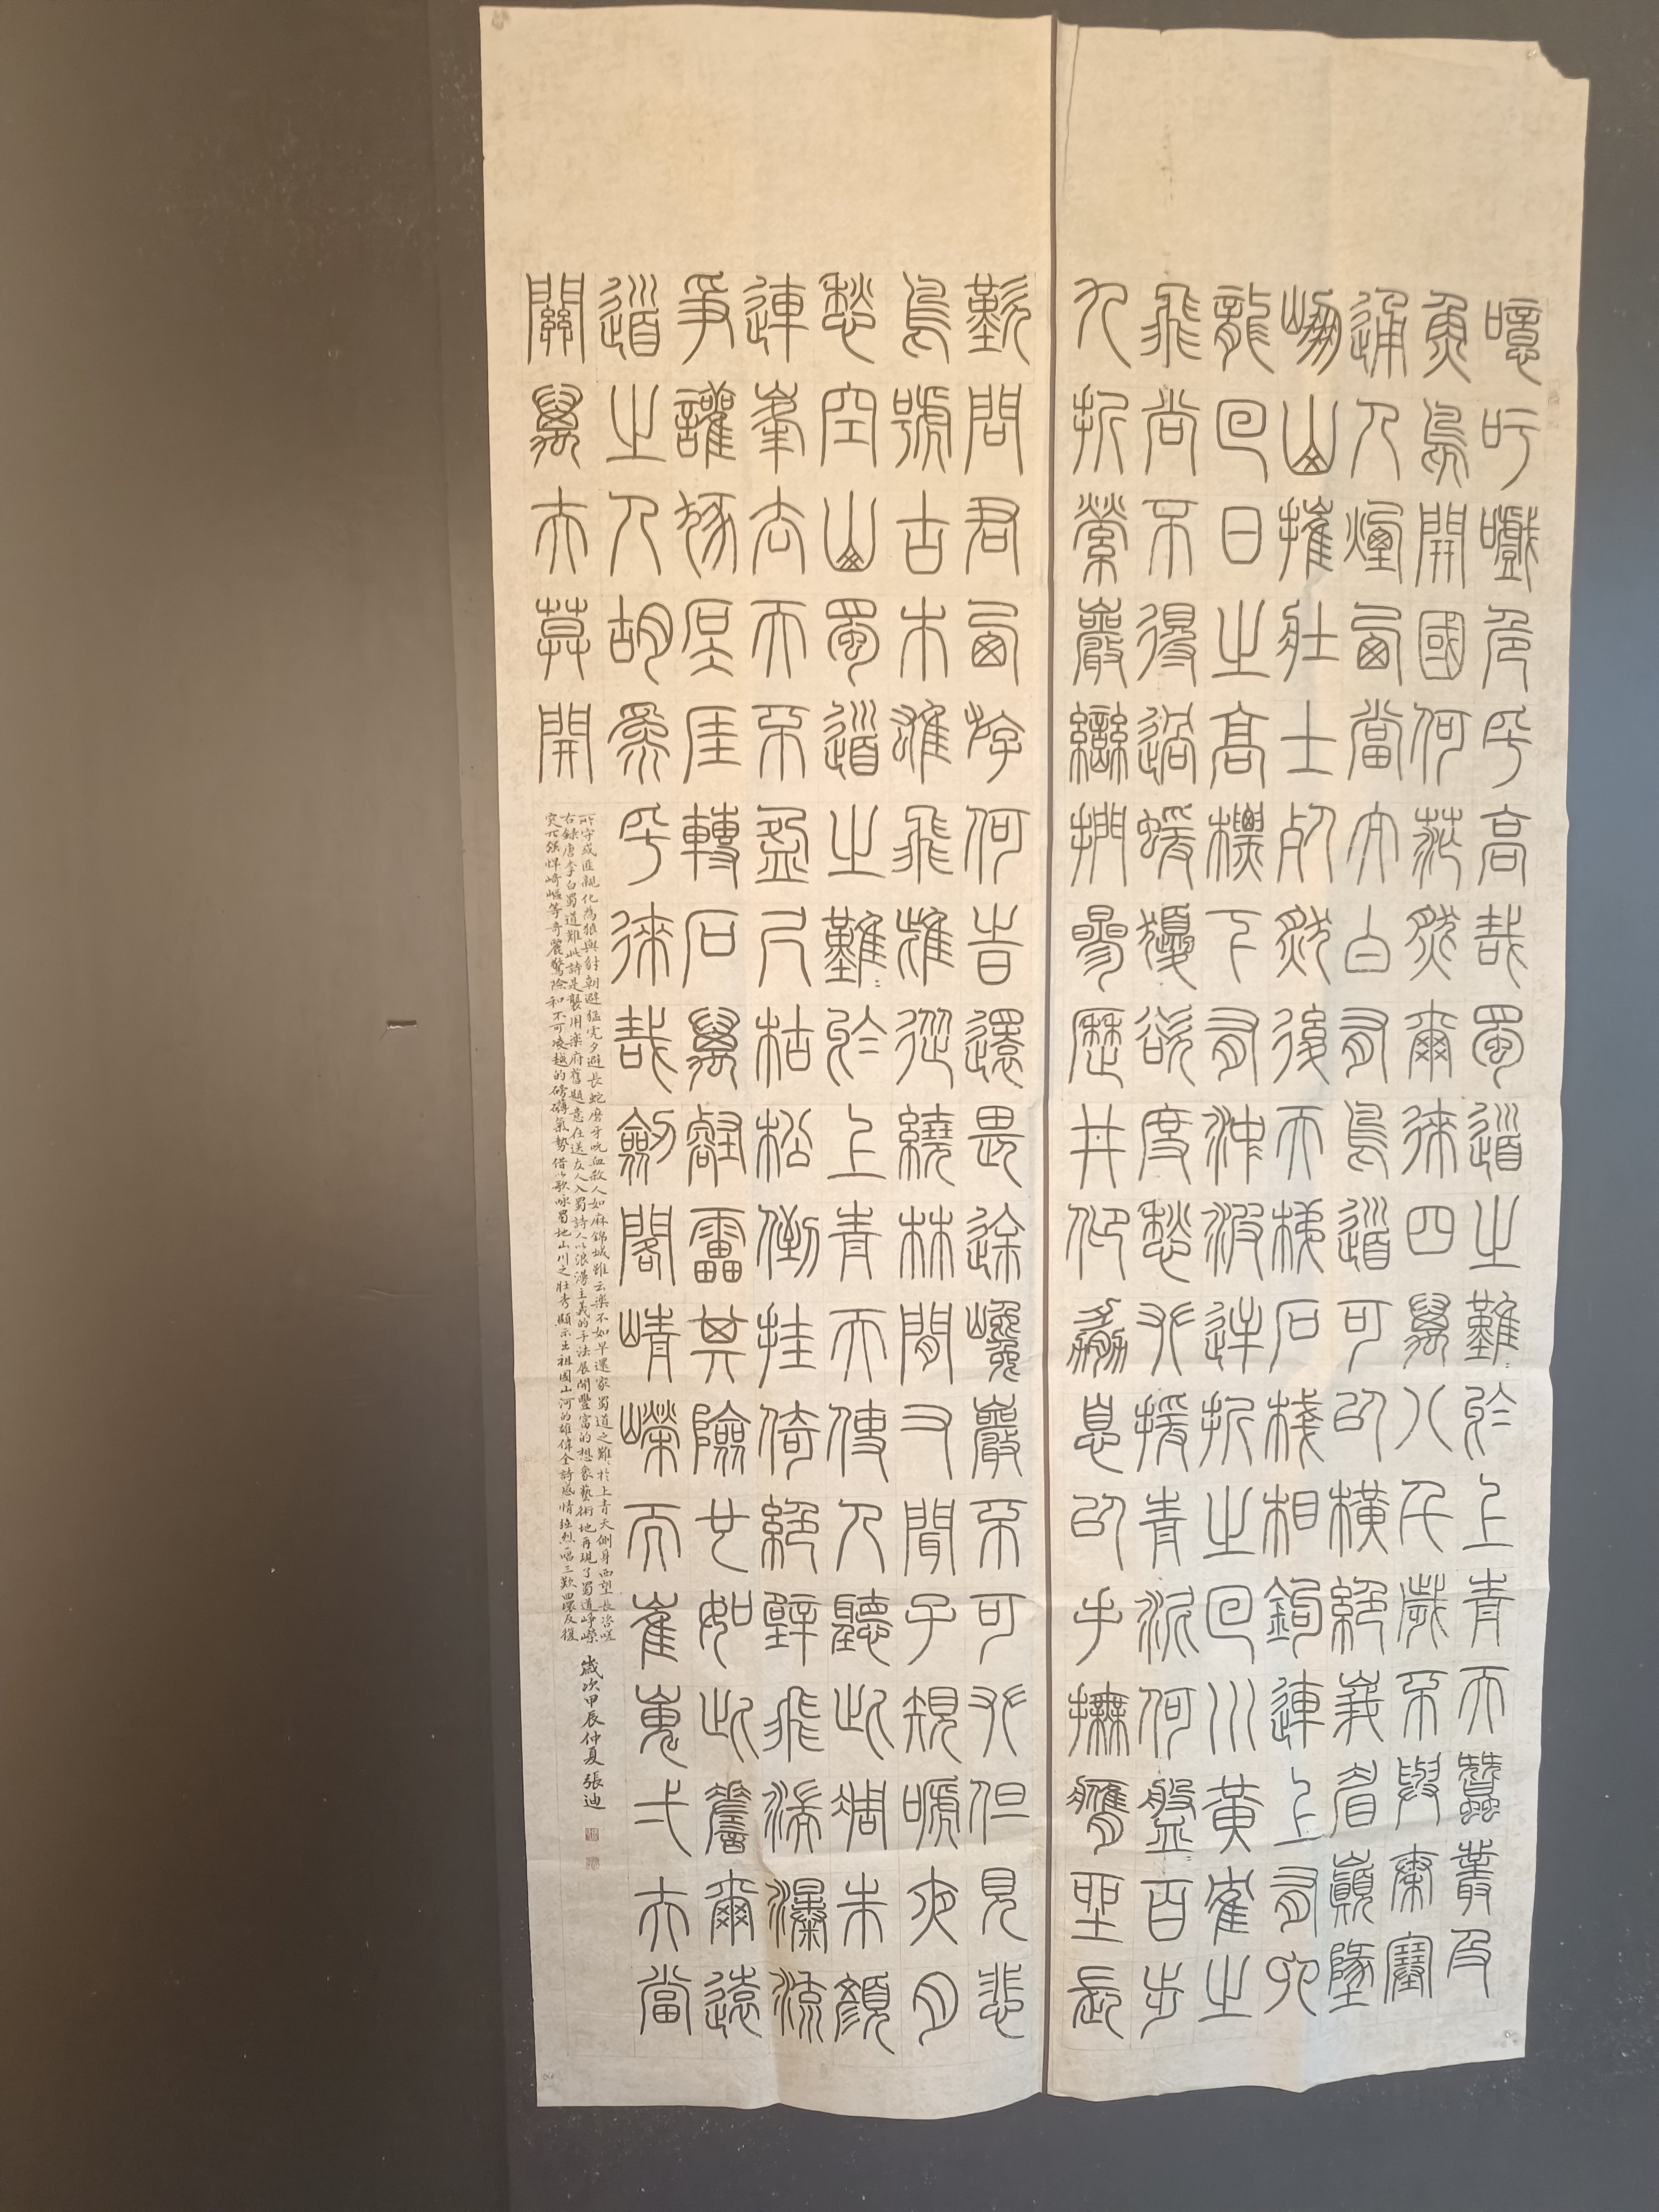 噫吁嚱危乎高哉蜀道之難〻於上青天蠶叢及
魚鳧開國何茫然爾來四萬八千歲不與秦塞
通人煙西當太白有鳥道可以橫絕峨眉巔地
崩山摧壯士死然後天梯石棧相鉤連上有六
龍回日之高標下有沖波逆折之回川黃鶴之
飛尚不得過猨猱欲度愁攀援青泥何盤〻百步
九折縈巖巒捫參歷井仰脅息以手撫膺坐長
歎問君西遊何時還畏途巉巖不可攀但見悲
鳥號古木雄飛雌從繞林間又聞子規嗁夜月
愁空山蜀道之難〻於上青天使人聽此凋朱顏
連峯去天不盈尺枯松倒挂倚絕壁飛湍瀑流
爭讙豗砯崖轉石萬壑雷其險也如此嗟爾遠
道之人胡為乎來哉劍閣崢嶸而崔嵬弌夫當
關萬夫莫開
所守或匪親化為狼與豺朝避猛虎夕避長蛇磨牙吮血殺人如麻錦城雖云樂不如早還家蜀道之難〻於上青天側身西望長咨嗟
右錄唐李白蜀道難此詩是襲用樂府舊題意在送友人入蜀詩人以浪漫主義的手法展開豐富的想象藝術地再現了蜀道崢嶸
突兀強悍崎嶇等奇麗驚險和不可凌越的磅礴氣勢借以歌咏蜀地山川之壯秀顯示出祖國山河的雄偉全詩感情強烈一唱三歎回環反復
歲次甲辰仲夏張迪